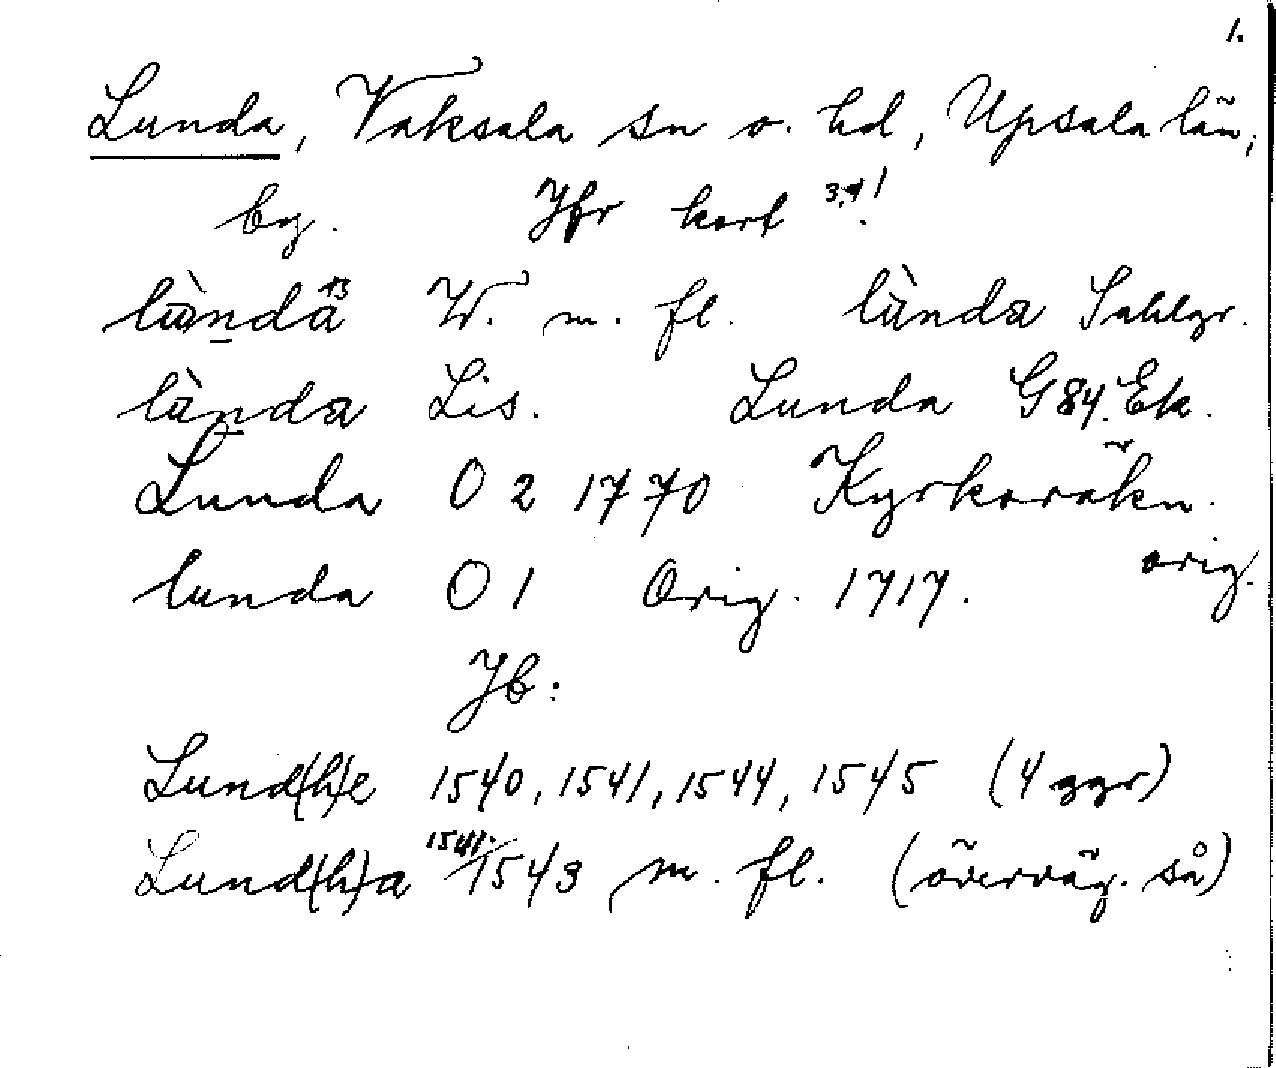 1.
Lunda, Vaksala sn o. hd, Upsala län,
by. Jfr kort 3,4!
lùnda W. m. fl. lùnda Sahlgr.
lùnda Lis. Lunda G84. Ek.
Lunda O 2 1770 Kyrkoräkn.
lunda O 1 Orig. 1717. orig.
Jb:
Lund(h)e 1540, 1541, 1544, 1545 (4 ggr)
Lund(h)a 1541, 1543 m. fl. (överväg. så)